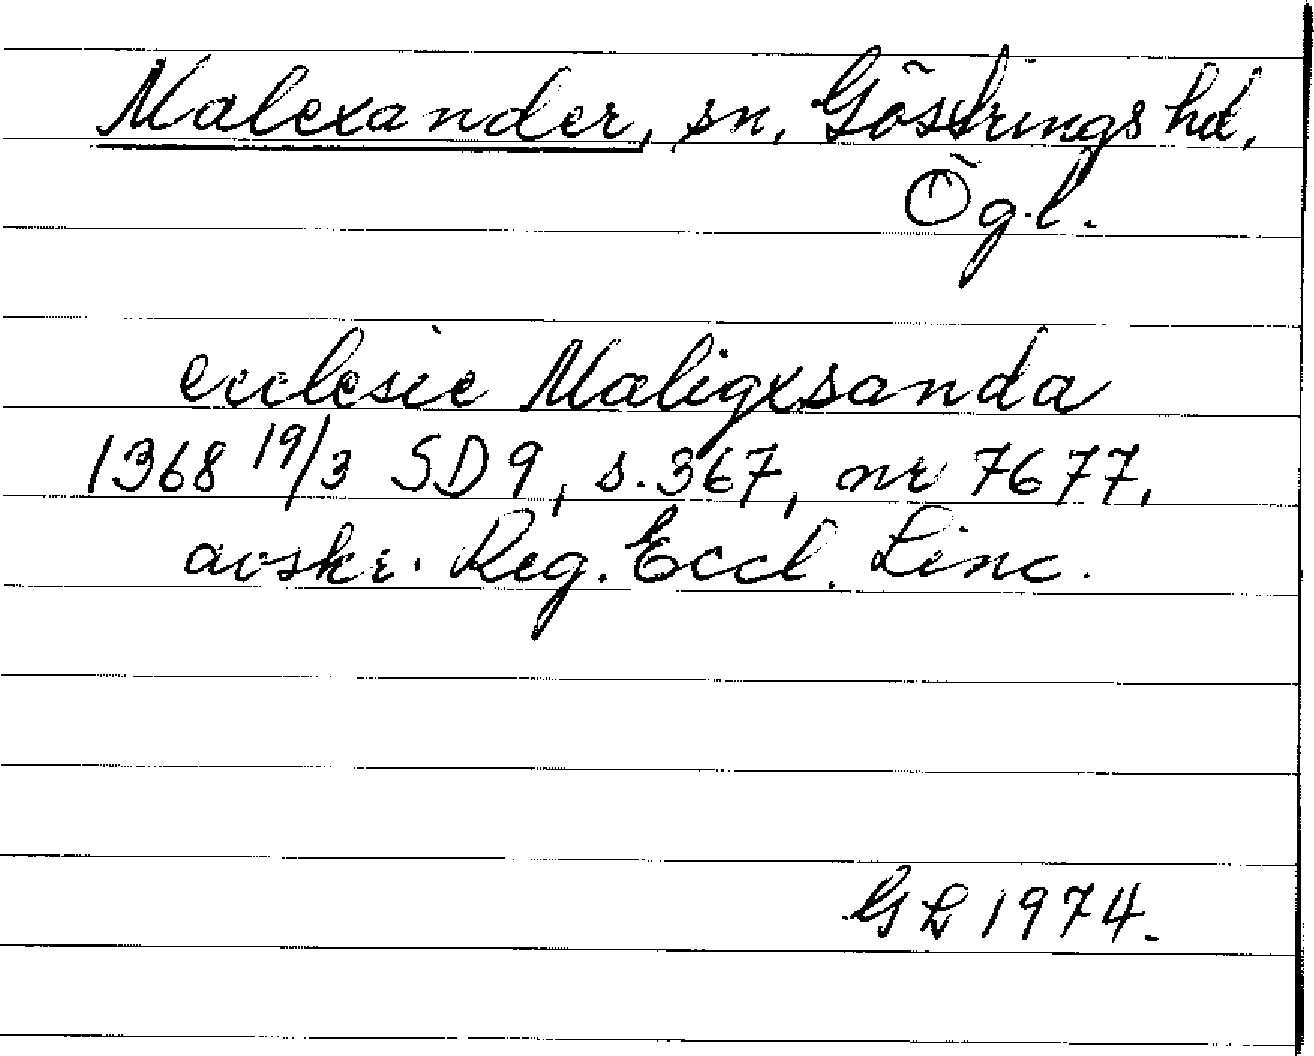 Malexander, sn, Göstrings hd,
Ögl.
ecclesie Maligxsanda
1368 19/3 SD 9, s. 367, nr 7677,
avskr. Reg. Eccl. Linc.
GL 1974.